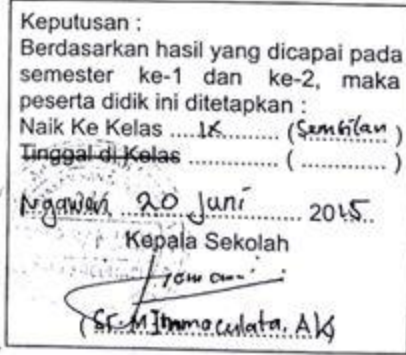 Keputusan :
Berdasarkan hasil yang dicapai pada
semester ke-1 dan ke-2, maka
peserta didik ini ditetapkan :
Naik Ke Kelas ....IX........ (Sembilan)
Tinggal di Kelas ............. ( ............ )
Ngawen 20 Juni 2015
Kepala Sekolah
(Sr. M Immaculata. AK)